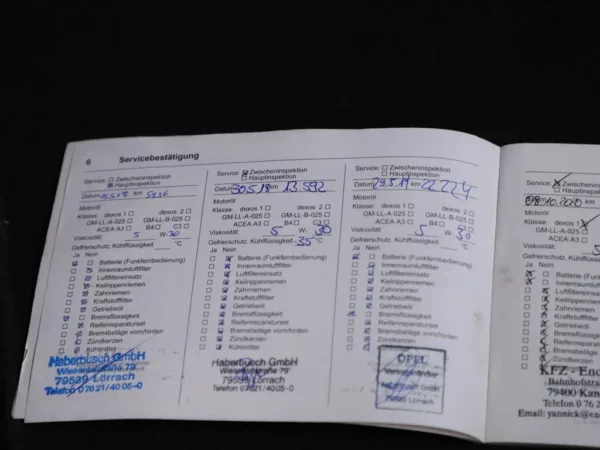 6 Servicebestätigung
Service: Zwischeninspektion
Hauptinspektion
Datum km
Motoröl
Klasse: dexos 1 dexos 2
GM-LL-A-025 GM-LL-B-025
ACEA A3 B4 C3
Viskosität: 5 W- 30
Gefrierschutz, Kühlflüssigkeit °C
Ja Nein
Batterie (Funkfernbedienung)
Innenraumluftfilter
Luftfiltereinsatz
Keilrippenriemen
Zahnriemen
Kraftstofffilter
Getriebeöl
Bremsflüssigkeit
Reifenreparaturset
Bremsbeläge vorn/hinten
Zündkerzen
Kühlmittel
Haberbusch GmbH
Wiesentalstraße 79
79539 Lörrach
Telefon 07621/4005-0
Service: Zwischeninspektion
Hauptinspektion
Datum 30.5.18 km 13 592
Motoröl
Klasse: dexos 1 dexos 2
GM-LL-A-025 GM-LL-B-025
ACEA A3 B4 C3
Viskosität: 5 W- 30
Gefrierschutz, Kühlflüssigkeit -35 °C
Ja Nein
Batterie (Funkfernbedienung)
Innenraumluftfilter
Luftfiltereinsatz
Keilrippenriemen
Zahnriemen
Kraftstofffilter
Getriebeöl
Bremsflüssigkeit
Reifenreparaturset
Bremsbeläge vorn/hinten
Zündkerzen
Kühlmittel
Haberbusch GmbH
Wiesentalstraße 79
79539 Lörrach
Telefon 07621/4005-0
Service: Zwischeninspektion
Hauptinspektion
Datum 29.5.19 km 22 224
Motoröl
Klasse: dexos 1 dexos 2
GM-LL-A-025 GM-LL-B-025
ACEA A3 B4 C3
Viskosität: 5 W- 30
Gefrierschutz, Kühlflüssigkeit °C
Ja Nein
Batterie (Funkfernbedienung)
Innenraumluftfilter
Luftfiltereinsatz
Keilrippenriemen
Zahnriemen
Kraftstofffilter
Getriebeöl
Bremsflüssigkeit
Reifenreparaturset
Bremsbeläge vorn/hinten
Zündkerzen
Kühlmittel
OPEL
Lörrach
Service: Zwischenins
Hauptinspe
.10.2020
Motoröl
Klasse: dexos 1
GM-LL-A-025
ACEA A3
Viskosität: 5
Gefrierschutz, Kühlflüssi
Ja Nein
Batterie (Funk
Innenraumluft
Luftfiltereins
Keilrippenri
Zahnriemen
Kraftstofffilt
Getriebeöl
Bremsflüssi
Reifenrepa
Bremsbelä
Zündkerze
KFZ - En
Bahnhofstra
79400 Kan
Telefon 0 76 2
Email: yannick@en